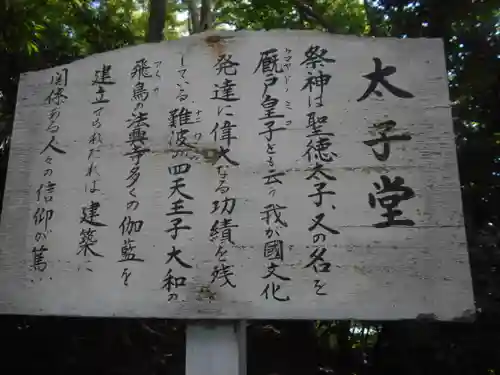 太子堂
祭神は聖徳太子、又の名を
厩戸皇子とも云う我が國文化
ウマヤド ミコ
発達に偉大なる功績を残
している難波の四天王子、大和の
ナニワ
飛鳥の法興寺多くの伽藍を
アスカ
建立せられたれば、建築に
関係ある人々の信仰が篤い